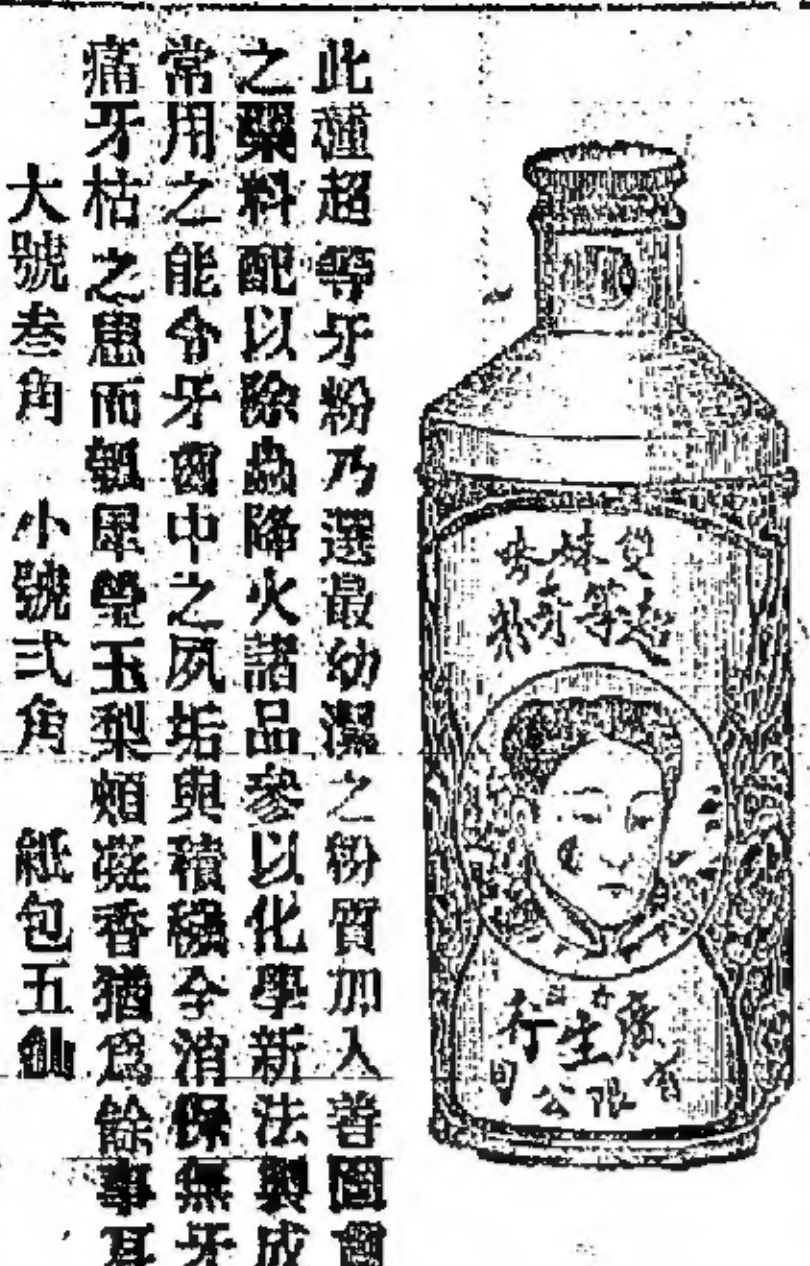 雙妹
超等牙粉
廣生行
有限公司
此種超等牙粉乃選最幼潔之粉質加入善固齒
之藥料配以除蟲降火諸品參以化學新法製成
常用之能令牙齒中之夙垢與積穢全消保無牙
痛牙枯之患而瓠犀瑩玉梨頰凝香猶爲餘事耳
大號叁角 小號弍角 紙包五仙